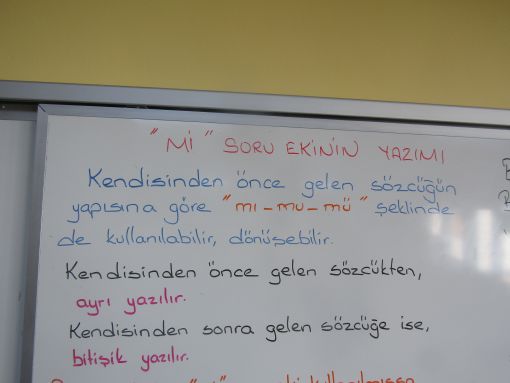 "Mİ" SORU EKİNİN YAZIMI
Kendisinden önce gelen sözcüğün
yapısına göre "mı-mu-mü" şeklinde
de kullanılabilir, dönüşebilir.
Kendisinden önce gelen sözcükten,
ayrı yazılır.
Kendisinden sonra gelen sözcüğe ise,
bitişik yazılır.